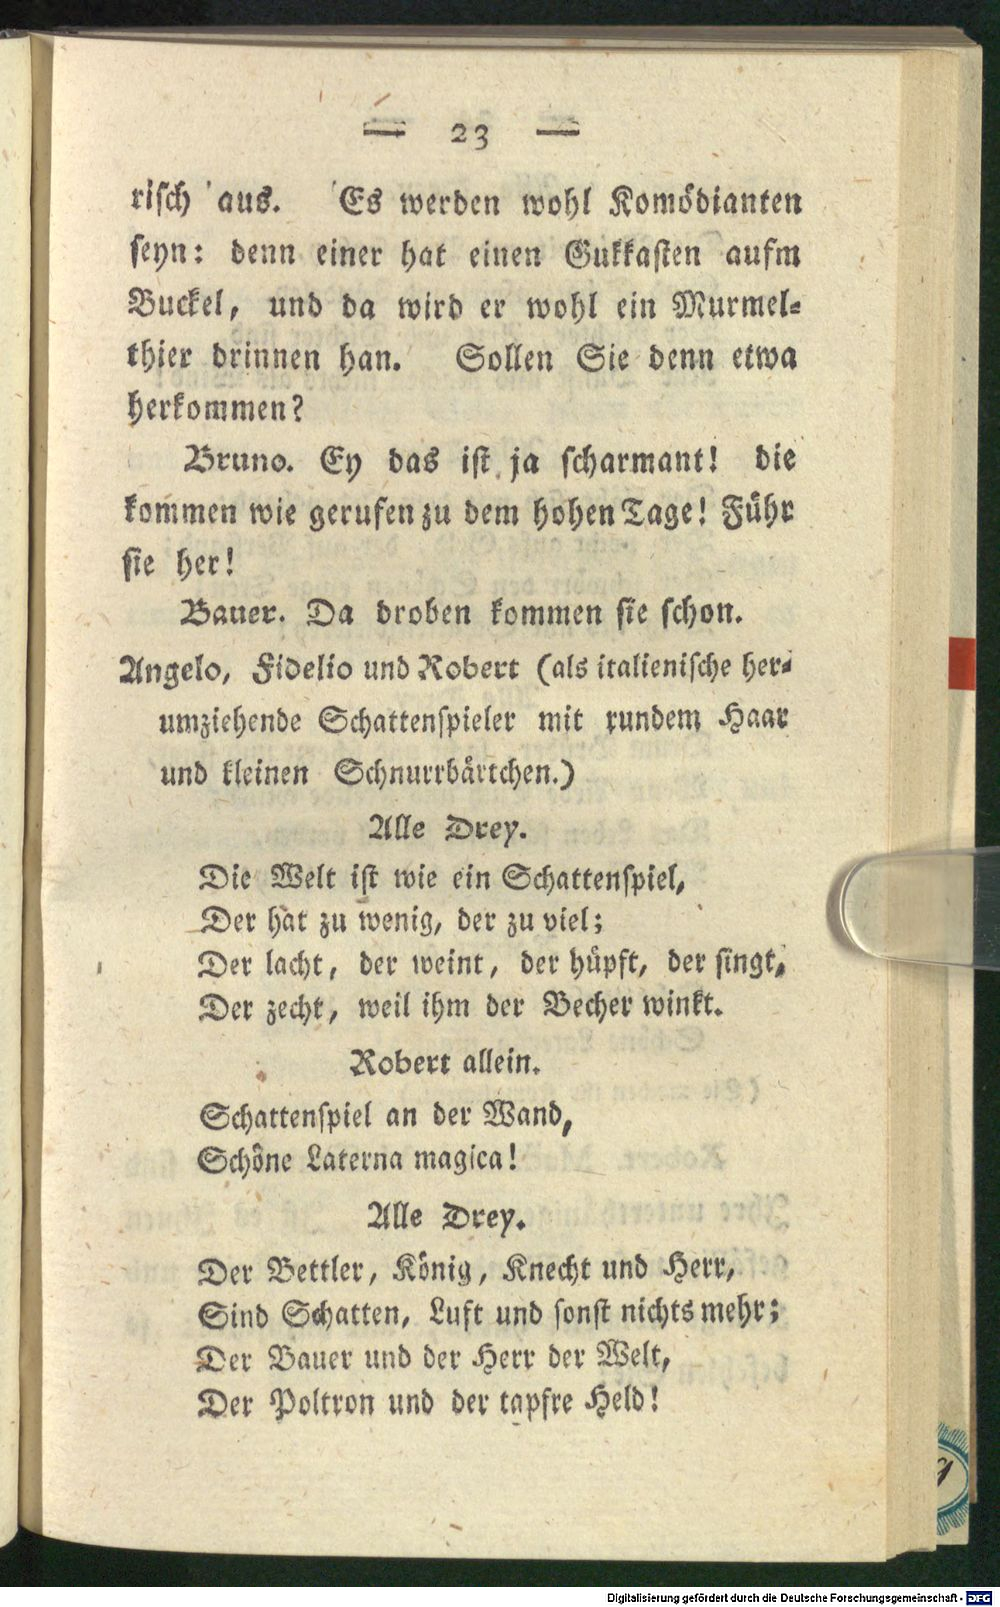 — 23 —
risch aus. Es werden wohl Komödianten
seyn: denn einer hat einen Gukkasten aufm
Buckel, und da wird er wohl ein Murmel-
thier drinnen han. Sollen Sie denn etwa
herkommen?
Bruno. Ey das ist ja scharmant! die
kommen wie gerufen zu dem hohen Tage! Führ
sie her!
Bauer. Da droben kommen sie schon.
Angelo, Fidelio und Robert (als italienische her-
umziehende Schattenspieler mit rundem Haar
und kleinen Schnurrbärtchen.)
Alle Drey.
Die Welt ist wie ein Schattenspiel,
Der hat zu wenig, der zu viel;
Der lacht, der weint, der hüpft, der singt,
Der zecht, weil ihm der Becher winkt.
Robert allein.
Schattenspiel an der Wand,
Schöne Laterna magica!
Alle Drey.
Der Bettler, König, Knecht und Herr,
Sind Schatten, Luft und sonst nichts mehr;
Der Bauer und der Herr der Welt,
Der Poltron und der tapfre Held!
Digitalisierung gefördert durch die Deutsche Forschungsgemeinschaft - DFG